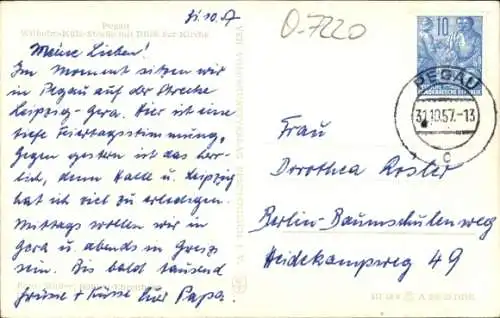 31.10.57
O-7220
Pegau
Wilhelm-Külz-Straße mit Blick zur Kirche
Meine Lieben!
Im Moment sitzen wir
in Pegau auf der Strecke
Leipzig-Gera. Hier ist eine
tiefe Feiertagsstimmung.
Gegen gestern ist das herr-
lich, denn Halle u. Leipzig
hat ich viel zu erledigen.
Mittags wollen wir in
Gera u. abends in Greiz
sein. Bis bald tausend
Grüsse + Küsse Papa.
10
PEGAU
31.10.57.-13
c
Frau
Dorothea Koster
Berlin-Baumschulenweg
Heidekampweg 49